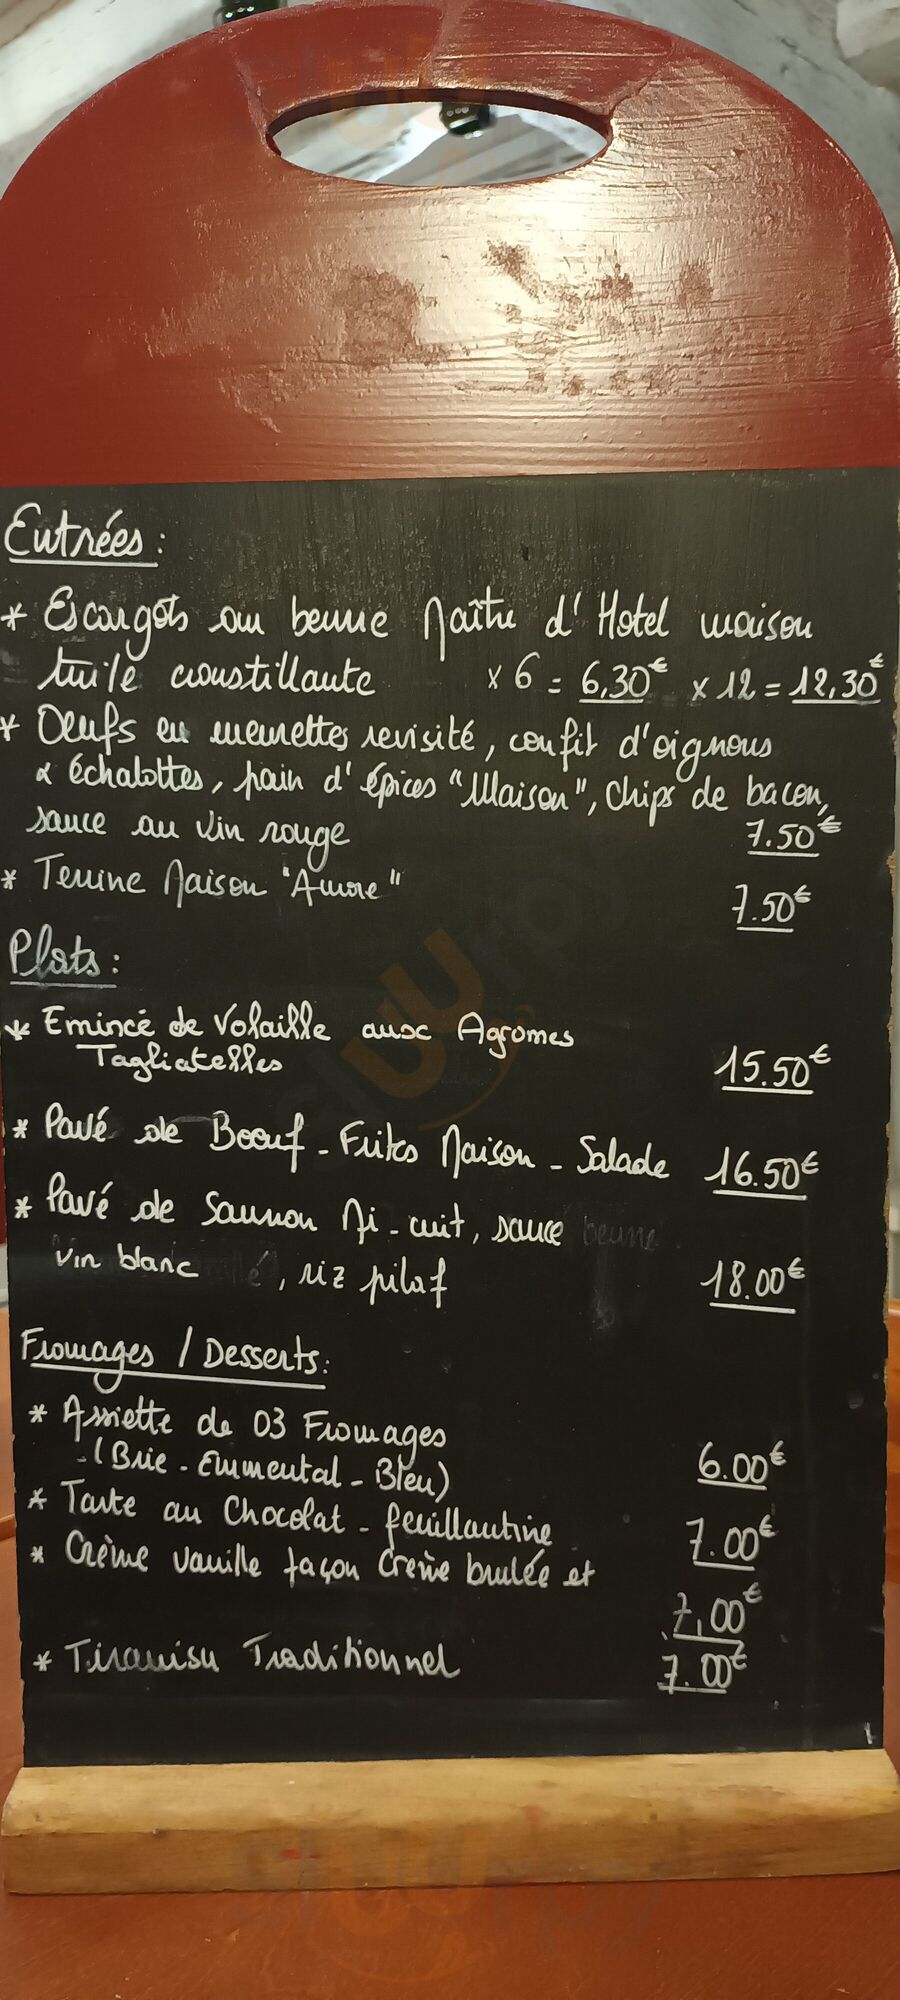 Entrées :
* Escargots au beurre Maître d'Hotel maison
tuile croustillante x 6 = 6,30€ x 12 = 12,30€
* Oeufs en meurettes revisité, confit d'oignons
& échalottes, pain d'épices "Maison", Chips de bacon,
sauce au vin rouge 7.50€
* Terrine Maison "Aurore" 7.50€
Plats :
* Emincé de Volaille aux Agromes
Tagliatelles 15.50€
* Pavé de Boeuf - Frites Maison - Salade 16.50€
* Pavé de Saumon Mi-cuit, sauce beurre
vin blanc , riz pilaf 18.00€
Fromages / Desserts :
* Assiette de 03 Fromages
(Brie - Emmental - Bleu) 6.00€
* Tarte au Chocolat - feuillantine 7.00€
* Crème vanille façon Crème brulée et
7,00€
* Tiramisu Traditionnel 7.00€